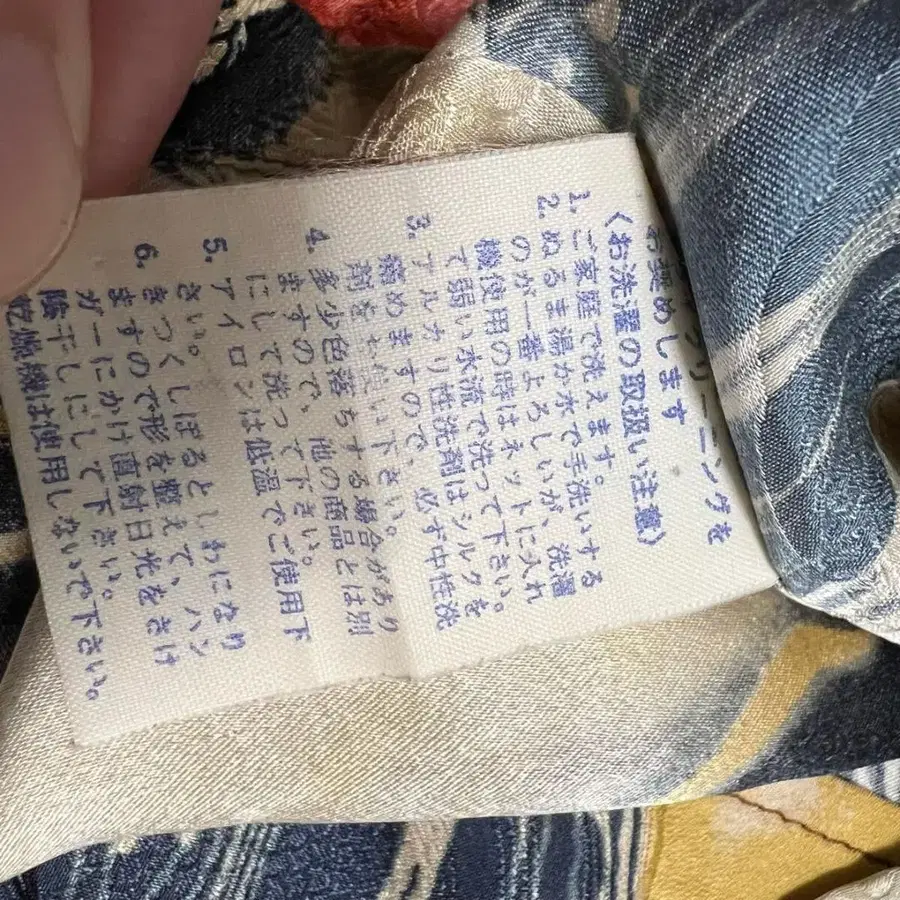 クリーニングを
お奨めします
〈お洗濯の取扱い注意〉
1. ご家庭で洗えます。
2. ぬるま湯か水で手洗いする
のが一番よろしいが、洗濯
機使用の時はネットに入れ
て弱い水流で洗って下さい。
3. アルカリ性洗剤はシルクを
縮めますので、必ず中性洗
剤をお使い下さい。
4. 多少色落ちする場合があり
ますので、他の商品とは別
にして洗って下さい。
5. アイロンは低温でご使用下
さい。
6. きつくしぼるとしわになり
ますので形を整えて、ハン
ガーにかけ直射日光をさけ
陰干しにして下さい。
乾燥機は使用しないで下さい。